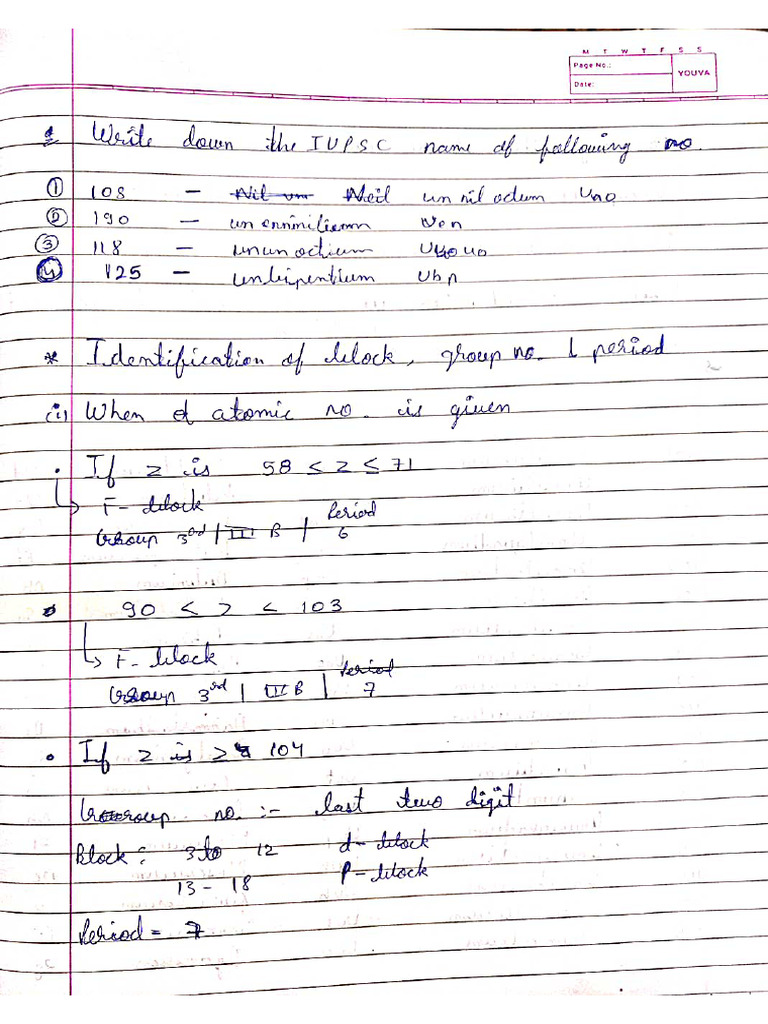 M T W T F S S
Page No.:
YOUVA
Date:
Q Write down the IUPSC name of following no.
① 108 – Nil un Neil un nil odum Uno
② 190 – un ennnilium Uen
③ 118 – ununoctium Uuo
④ 125 – unbipentium Ubp
* Identification of block, group no. & period
(i) When of atomic no. is given
• If z is 58 ≤ z ≤ 71
↳ F- block
Group 3rd | III B | Period 6
• 90 < z < 103
↳ F- block
Group 3rd | III B | Period 7
• If z is ≥ 104
Group no. :- last two digit
Block: 3 to 12 d- block
13 - 18 P- block
Period = 7